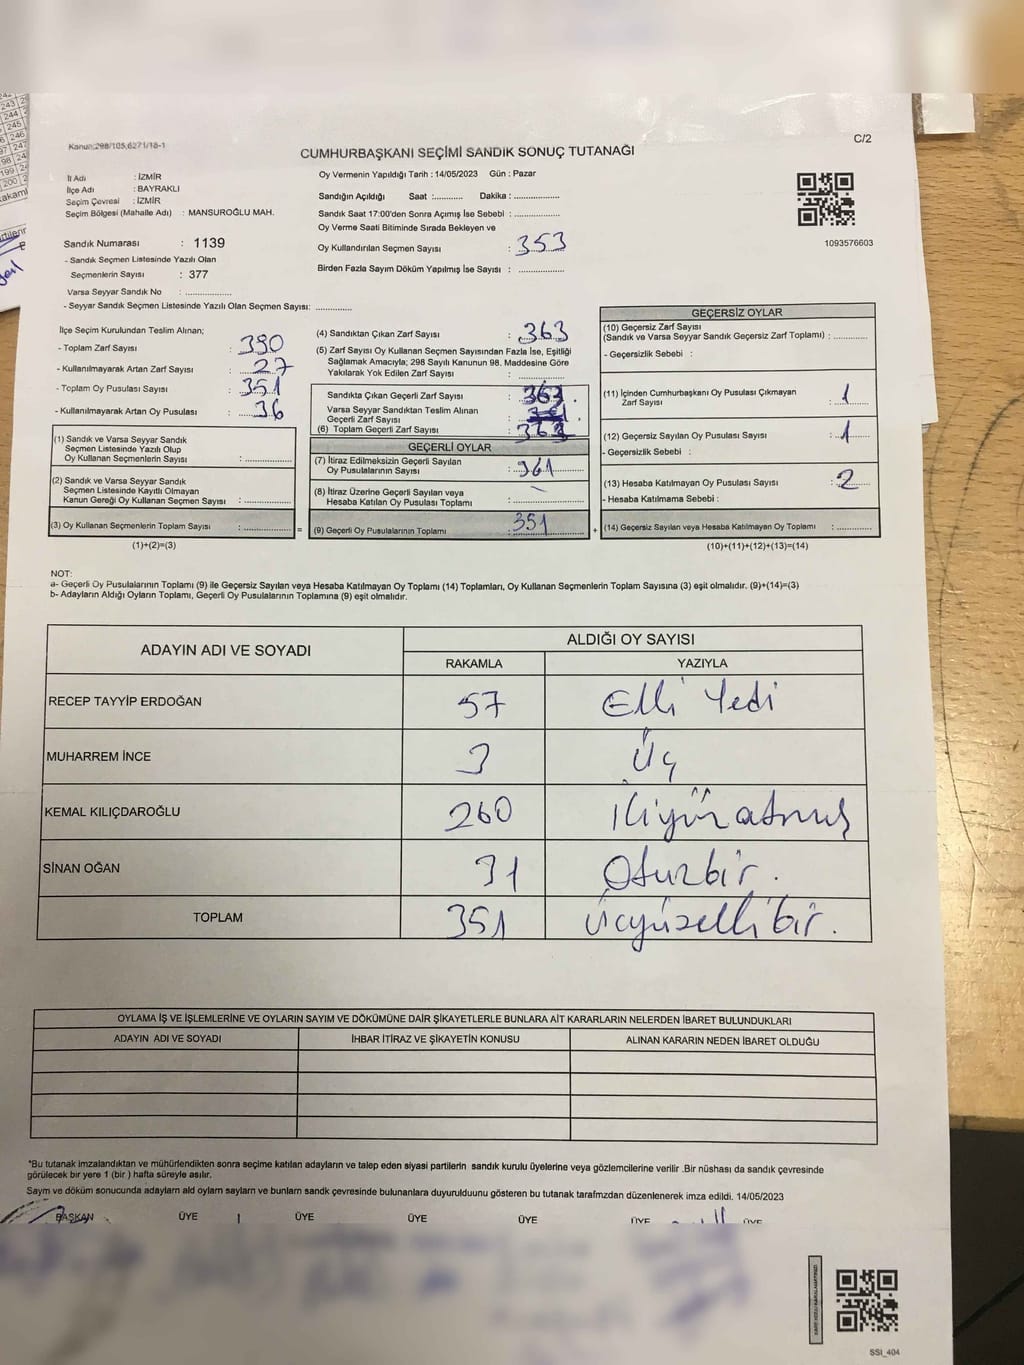 Kanun:298/105,6271/18-1
C/2
CUMHURBAŞKANI SEÇİMİ SANDIK SONUÇ TUTANAĞI
İl Adı : İZMİR
İlçe Adı : BAYRAKLI
Seçim Çevresi : İZMİR
Seçim Bölgesi (Mahalle Adı) : MANSUROĞLU MAH.
Sandık Numarası : 1139
- Sandık Seçmen Listesinde Yazılı Olan
Seçmenlerin Sayısı : 377
Varsa Seyyar Sandık No : ..............
- Seyyar Sandık Seçmen Listesinde Yazılı Olan Seçmen Sayısı: ............
Oy Vermenin Yapıldığı Tarih : 14/05/2023 Gün : Pazar
Sandığın Açıldığı Saat :........... Dakika : ................
Sandık Saat 17:00'den Sonra Açımış İse Sebebi : ................
Oy Verme Saati Bitiminde Sırada Bekleyen ve
Oy Kullandırılan Seçmen Sayısı : 353
Birden Fazla Sayım Döküm Yapılmış İse Sayısı : ................
1093576603
İlçe Seçim Kurulundan Teslim Alınan;
- Toplam Zarf Sayısı : 390
- Kullanılmayarak Artan Zarf Sayısı : 27
- Toplam Oy Pusulası Sayısı : 351
- Kullanılmayarak Artan Oy Pusulası : 36
(1) Sandık ve Varsa Seyyar Sandık
Seçmen Listesinde Yazılı Olup
Oy Kullanan Seçmenlerin Sayısı :
(2) Sandık ve Varsa Seyyar Sandık
Seçmen Listesinde Kayıtlı Olmayan
Kanun Gereği Oy Kullanan Seçmen Sayısı :
(3) Oy Kullanan Seçmenlerin Toplam Sayısı :
(1)+(2)=(3)
=
(4) Sandıktan Çıkan Zarf Sayısı : 363
(5) Zarf Sayısı Oy Kullanan Seçmen Sayısından Fazla İse, Eşitliği
Sağlamak Amacıyla; 298 Sayılı Kanunun 98. Maddesine Göre
Yakılarak Yok Edilen Zarf Sayısı :
Sandıkta Çıkan Geçerli Zarf Sayısı : 363.
Varsa Seyyar Sandıktan Teslim Alınan
Geçerli Zarf Sayısı :
(6) Toplam Geçerli Zarf Sayısı : 363
GEÇERLİ OYLAR
(7) İtiraz Edilmeksizin Geçerli Sayılan
Oy Pusulalarının Sayısı : 361
(8) İtiraz Üzerine Geçerli Sayılan veya
Hesaba Katılan Oy Pusulası Sayısı :
(9) Geçerli Oy Pusulalarının Toplamı : 351
+
GEÇERSİZ OYLAR
(10) Geçersiz Zarf Sayısı
(Sandık ve Varsa Seyyar Sandık Geçersiz Zarf Toplamı) :
- Geçersizlik Sebebi :
(11) İçinden Cumhurbaşkanı Oy Pusulası Çıkmayan
Zarf Sayısı : 1
(12) Geçersiz Sayılan Oy Pusulası Sayısı : 1
- Geçersizlik Sebebi :
(13) Hesaba Katılmayan Oy Pusulası Sayısı : 2
- Hesaba Katılmama Sebebi :
(14) Geçersiz Sayılan veya Hesaba Katılmayan Oy Toplamı :
(10)+(11)+(12)+(13)=(14)
NOT:
a- Geçerli Oy Pusulalarının Toplamı (9) ile Geçersiz Sayılan veya Hesaba Katılmayan Oy Toplamı (14) Toplamları, Oy Kullanan Seçmenlerin Toplam Sayısına (3) eşit olmalıdır. (9)+(14)=(3)
b- Adayların Aldığı Oyların Toplamı, Geçerli Oy Pusulalarının Toplamına (9) eşit olmalıdır.
ADAYIN ADI VE SOYADI
ALDIĞI OY SAYISI
RAKAMLA YAZIYLA
RECEP TAYYİP ERDOĞAN 57 Elli Yedi
MUHARREM İNCE 3 Üç
KEMAL KILIÇDAROĞLU 260 ikiyüz atmış
SİNAN OĞAN 31 Otuzbir.
TOPLAM 351 üçyüzellibir.
OYLAMA İŞ VE İŞLEMLERİNE VE OYLARIN SAYIM VE DÖKÜMÜNE DAİR ŞİKAYETLERLE BUNLARA AİT KARARLARIN NELERDEN İBARET BULUNDUKLARI
ADAYIN ADI VE SOYADI İHBAR İTİRAZ VE ŞİKAYETİN KONUSU ALINAN KARARIN NEDEN İBARET OLDUĞU
*Bu tutanak imzalandıktan ve mühürlendikten sonra seçime katılan adayların ve talep eden siyasi partilerin sandık kurulu üyelerine veya gözlemcilerine verilir .Bir nüshası da sandık çevresinde
görülecek bir yere 1 (bir ) hafta süreyle asılır.
Saym ve döküm sonucunda adaylarn ald oylarn saylarn ve bunlarn sandk çevresinde bulunanlara duyurulduunu gösteren bu tutanak tarafmzdan düzenlenerek imza edildi. 14/05/2023
BAŞKAN ÜYE ÜYE ÜYE ÜYE ÜYE ÜYE
SSI_404